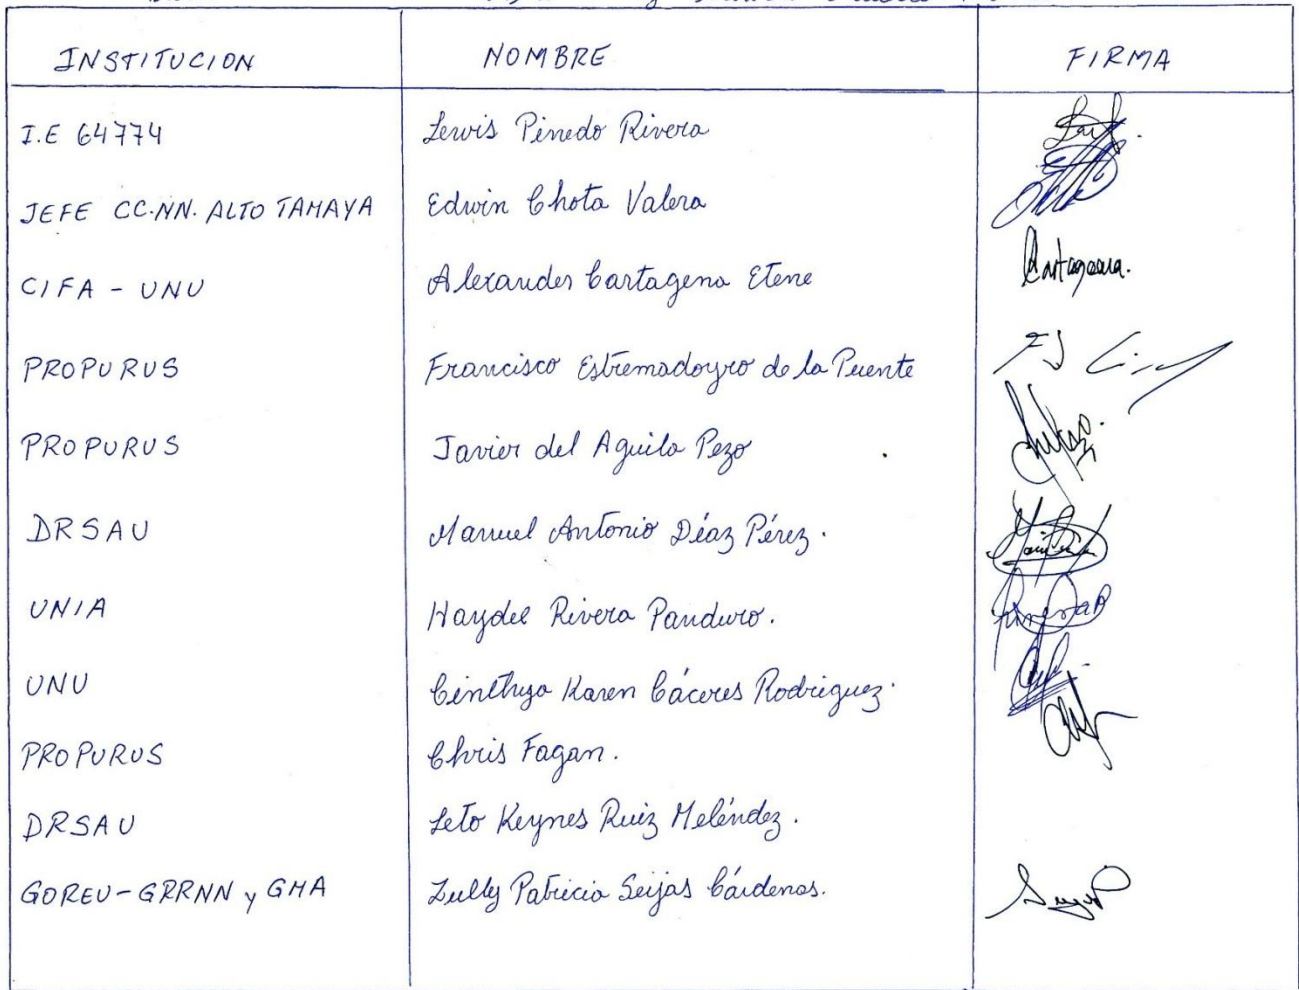 INSTITUCION NOMBRE FIRMA
I.E 64774 Lewis Pinedo Rivera
JEFE CC.NN. ALTO TAMAYA Edwin Chota Valera
CIFA - UNU Alexander Cartagena Etene Cartagena.
PROPURUS Francisco Estremadoyro de la Puente
PROPURUS Javier del Aguila Pezo
DRSAU Manuel Antonio Díaz Pérez.
UNIA Haydee Rivera Panduro.
UNU Cinthya Karen Cáceres Rodriguez.
PROPURUS Chris Fagan.
DRSAU Leto Keynes Ruiz Meléndez.
GOREU-GRRNN y GMA Zully Patricia Seijas Cárdenas.